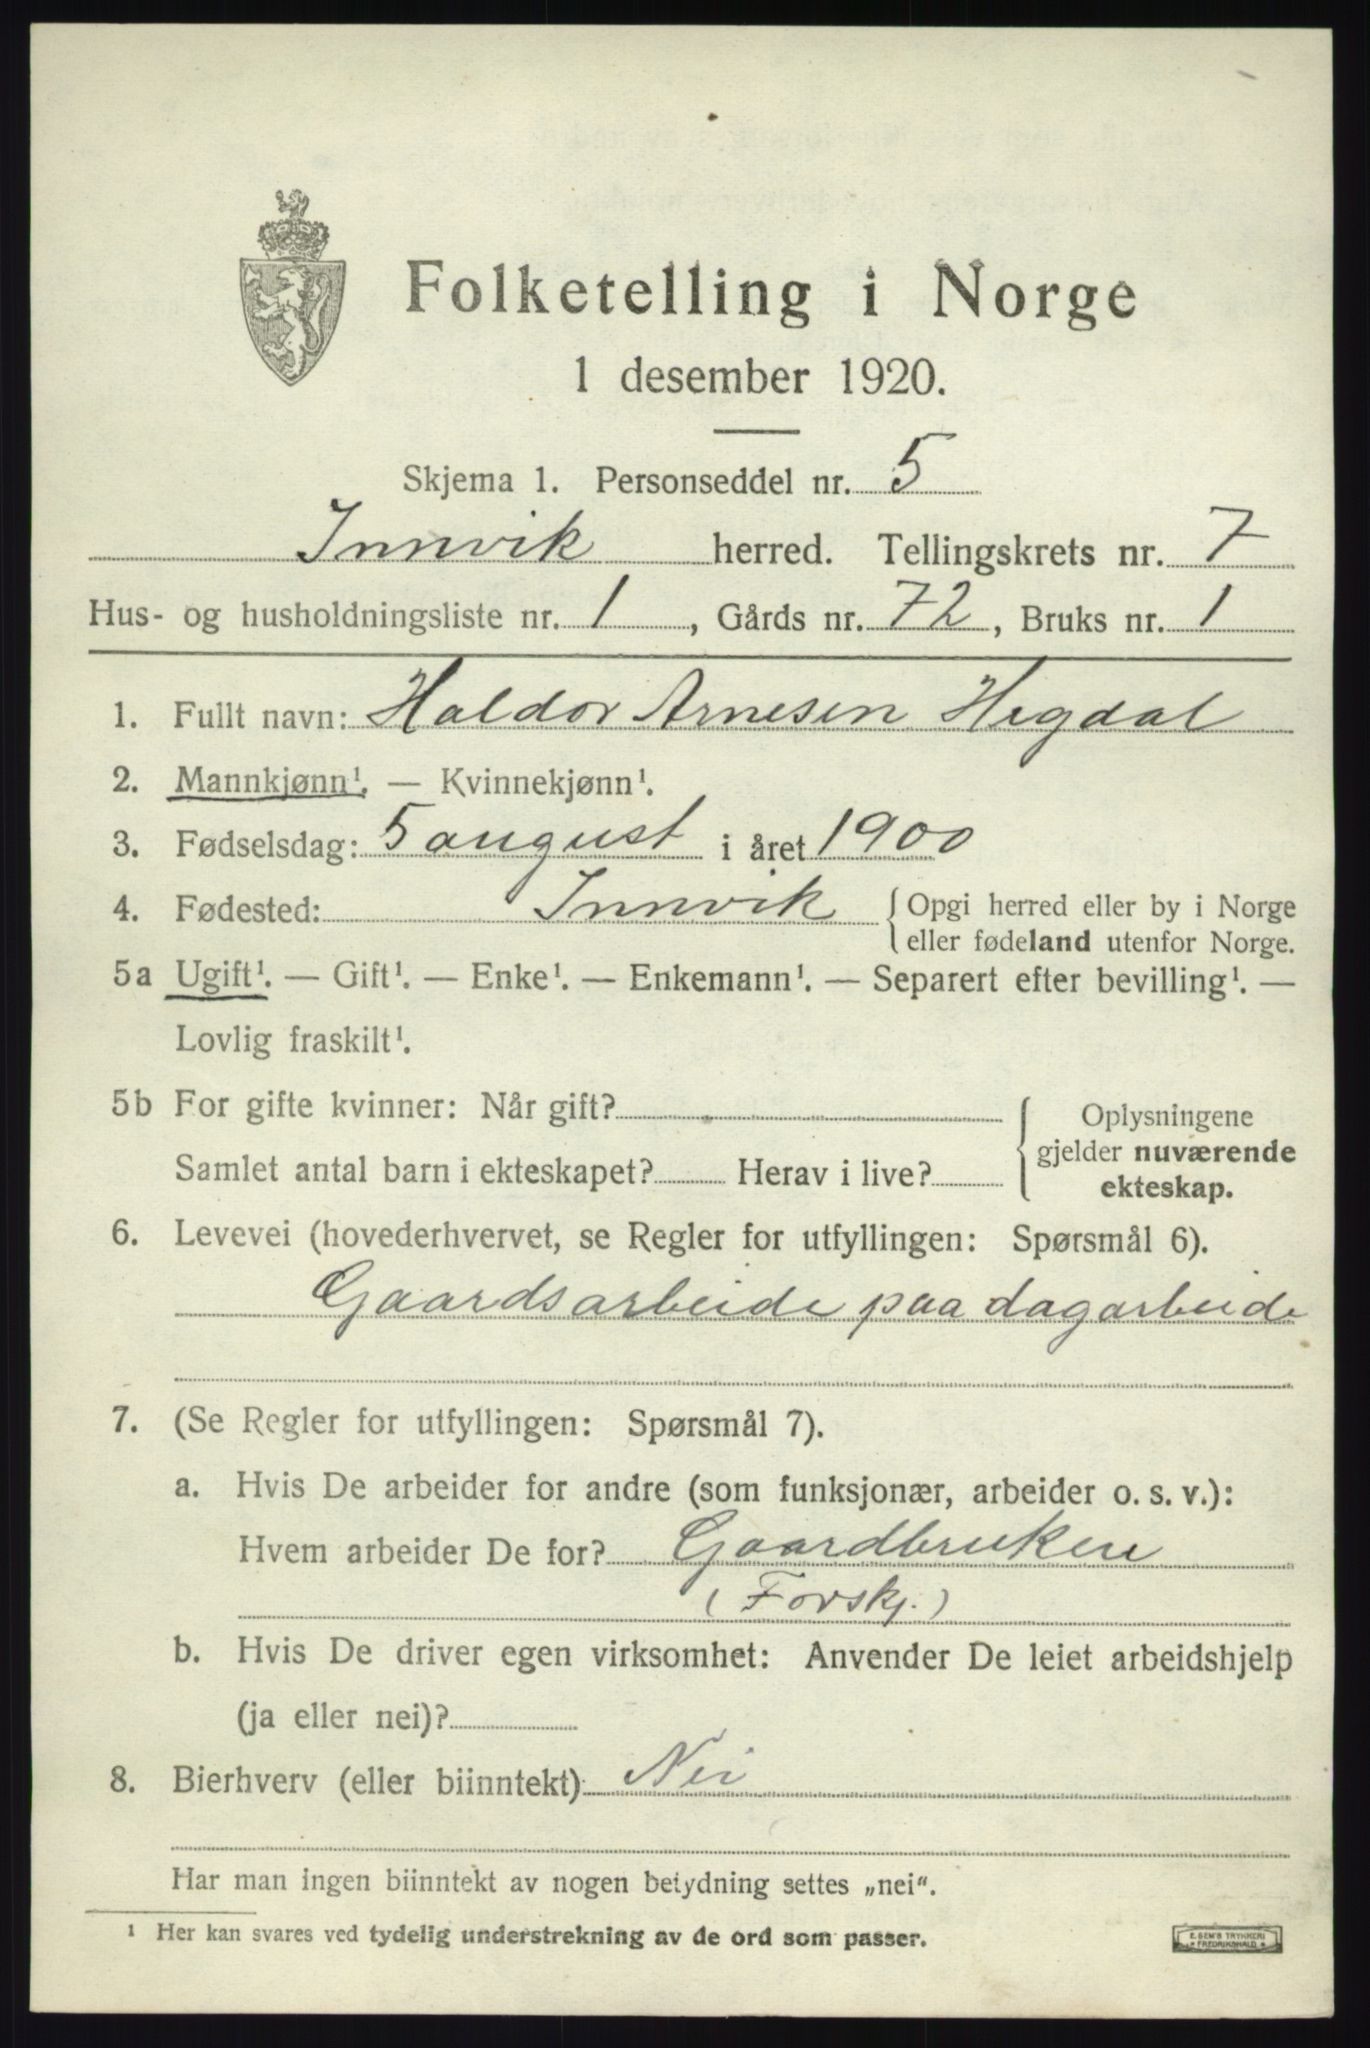 Folketelling i Norge
1 desember 1920.
Skjema 1. Personseddel nr. 5
Innvik herred. Tellingskrets nr. 7
Hus- og husholdningsliste nr. 1, Gårds nr. 72, Bruks nr. 1
1. Fullt navn: Haldor Arnesen Hegdal
2. Mannkjønn¹. — Kvinnekjønn¹.
3. Fødselsdag: 5 august i året 1900
4. Fødested: Innvik { Opgi herred eller by i Norge
eller fødeland utenfor Norge.
5a Ugift¹. — Gift¹. — Enke¹. — Enkemann¹. — Separert efter bevilling¹. —
Lovlig fraskilt¹.
5b For gifte kvinner: Når gift?
Samlet antal barn i ekteskapet? Herav i live?
{ Oplysningene
gjelder nuværende
ekteskap.
6. Levevei (hovederhvervet, se Regler for utfyllingen: Spørsmål 6).
Gaardsarbeide paa dagarbeide
7. (Se Regler for utfyllingen: Spørsmål 7).
a. Hvis De arbeider for andre (som funksjonær, arbeider o. s. v.):
Hvem arbeider De for? Gaardbrukere
(Forskj.)
b. Hvis De driver egen virksomhet: Anvender De leiet arbeidshjelp
(ja eller nei)?
8. Bierhverv (eller biinntekt) Nei
Har man ingen biinntekt av nogen betydning settes „nei“.
¹ Her kan svares ved tydelig understrekning av de ord som passer.
E. SEM'S TRYKKERI
FREDRIKSHALD